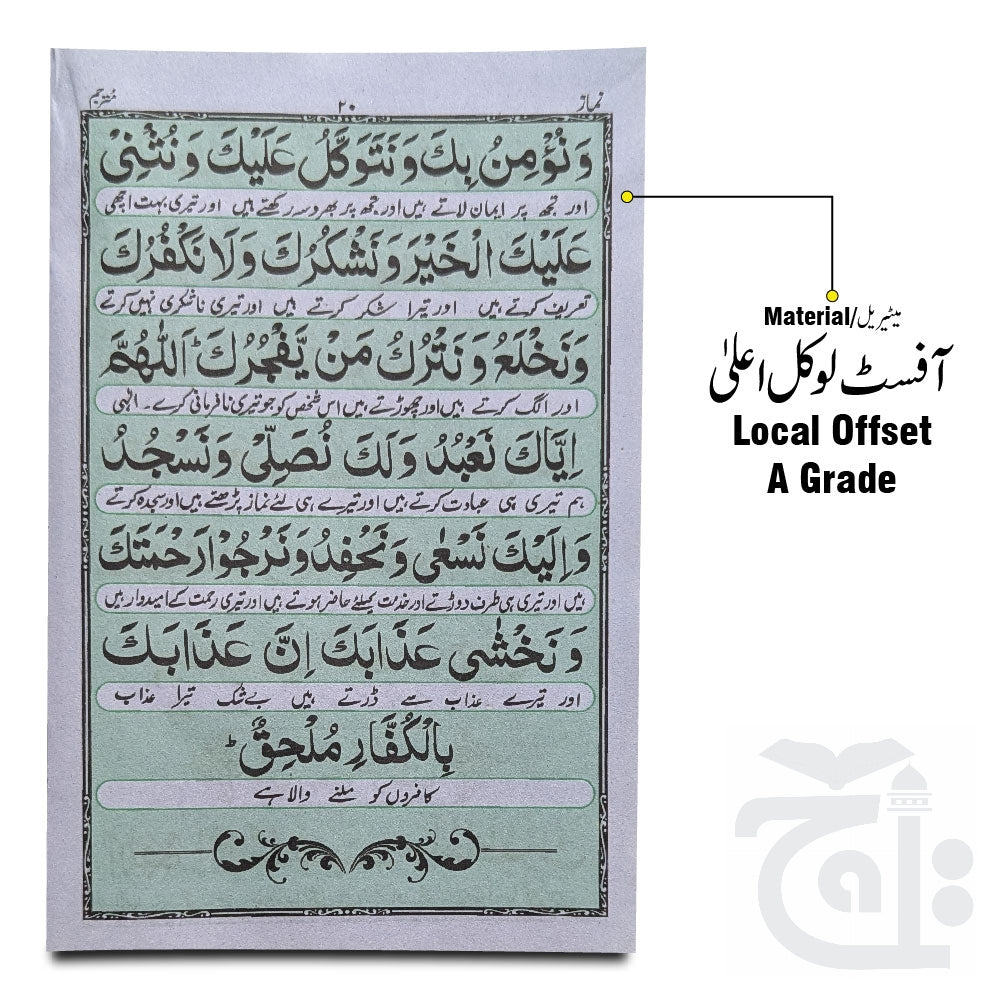 نماز ۲۰ مُترجم
وَ نُؤْمِنُ بِكَ وَ نَتَوَكَّلُ عَلَيْكَ وَ نُثْنِىْ
اور تجھ پر ایمان لاتے ہیں اور تجھ پر بھروسہ رکھتے ہیں اور تیری بہت اچھی
عَلَيْكَ الْخَيْرَ وَ نَشْكُرُكَ وَلَا نَكْفُرُكَ
تعریف کرتے ہیں اور تیرا شکر کرتے ہیں اور تیری ناشکری نہیں کرتے
وَ نَخْلَعُ وَ نَتْرُكُ مَنْ يَّفْجُرُكَ ؕ اَللّٰهُمَّ
اور الگ کرتے ہیں اور چھوڑتے ہیں اس شخص کو جو تیری نافرمانی کرے۔ الٰہی
اِيَّاكَ نَعْبُدُ وَلَكَ نُصَلِّىْ وَ نَسْجُدُ
ہم تیری ہی عبادت کرتے ہیں اور تیرے ہی لئے نماز پڑھتے ہیں اور سجدہ کرتے
وَ اِلَيْكَ نَسْعٰى وَ نَحْفِدُ وَ نَرْجُوْا رَحْمَتَكَ
ہیں اور تیری ہی طرف دوڑتے اور خدمت کیلئے حاضر ہوتے ہیں اور تیری رحمت کے امیدوار ہیں
وَ نَخْشٰى عَذَابَكَ اِنَّ عَذَابَكَ
اور تیرے عذاب سے ڈرتے ہیں بے شک تیرا عذاب
بِالْكُفَّارِ مُلْحِقٌ ؕ
کافروں کو ملنے والا ہے
Material/میٹیریل
آفسٹ لوکل اعلیٰ
Local Offset
A Grade
تاج